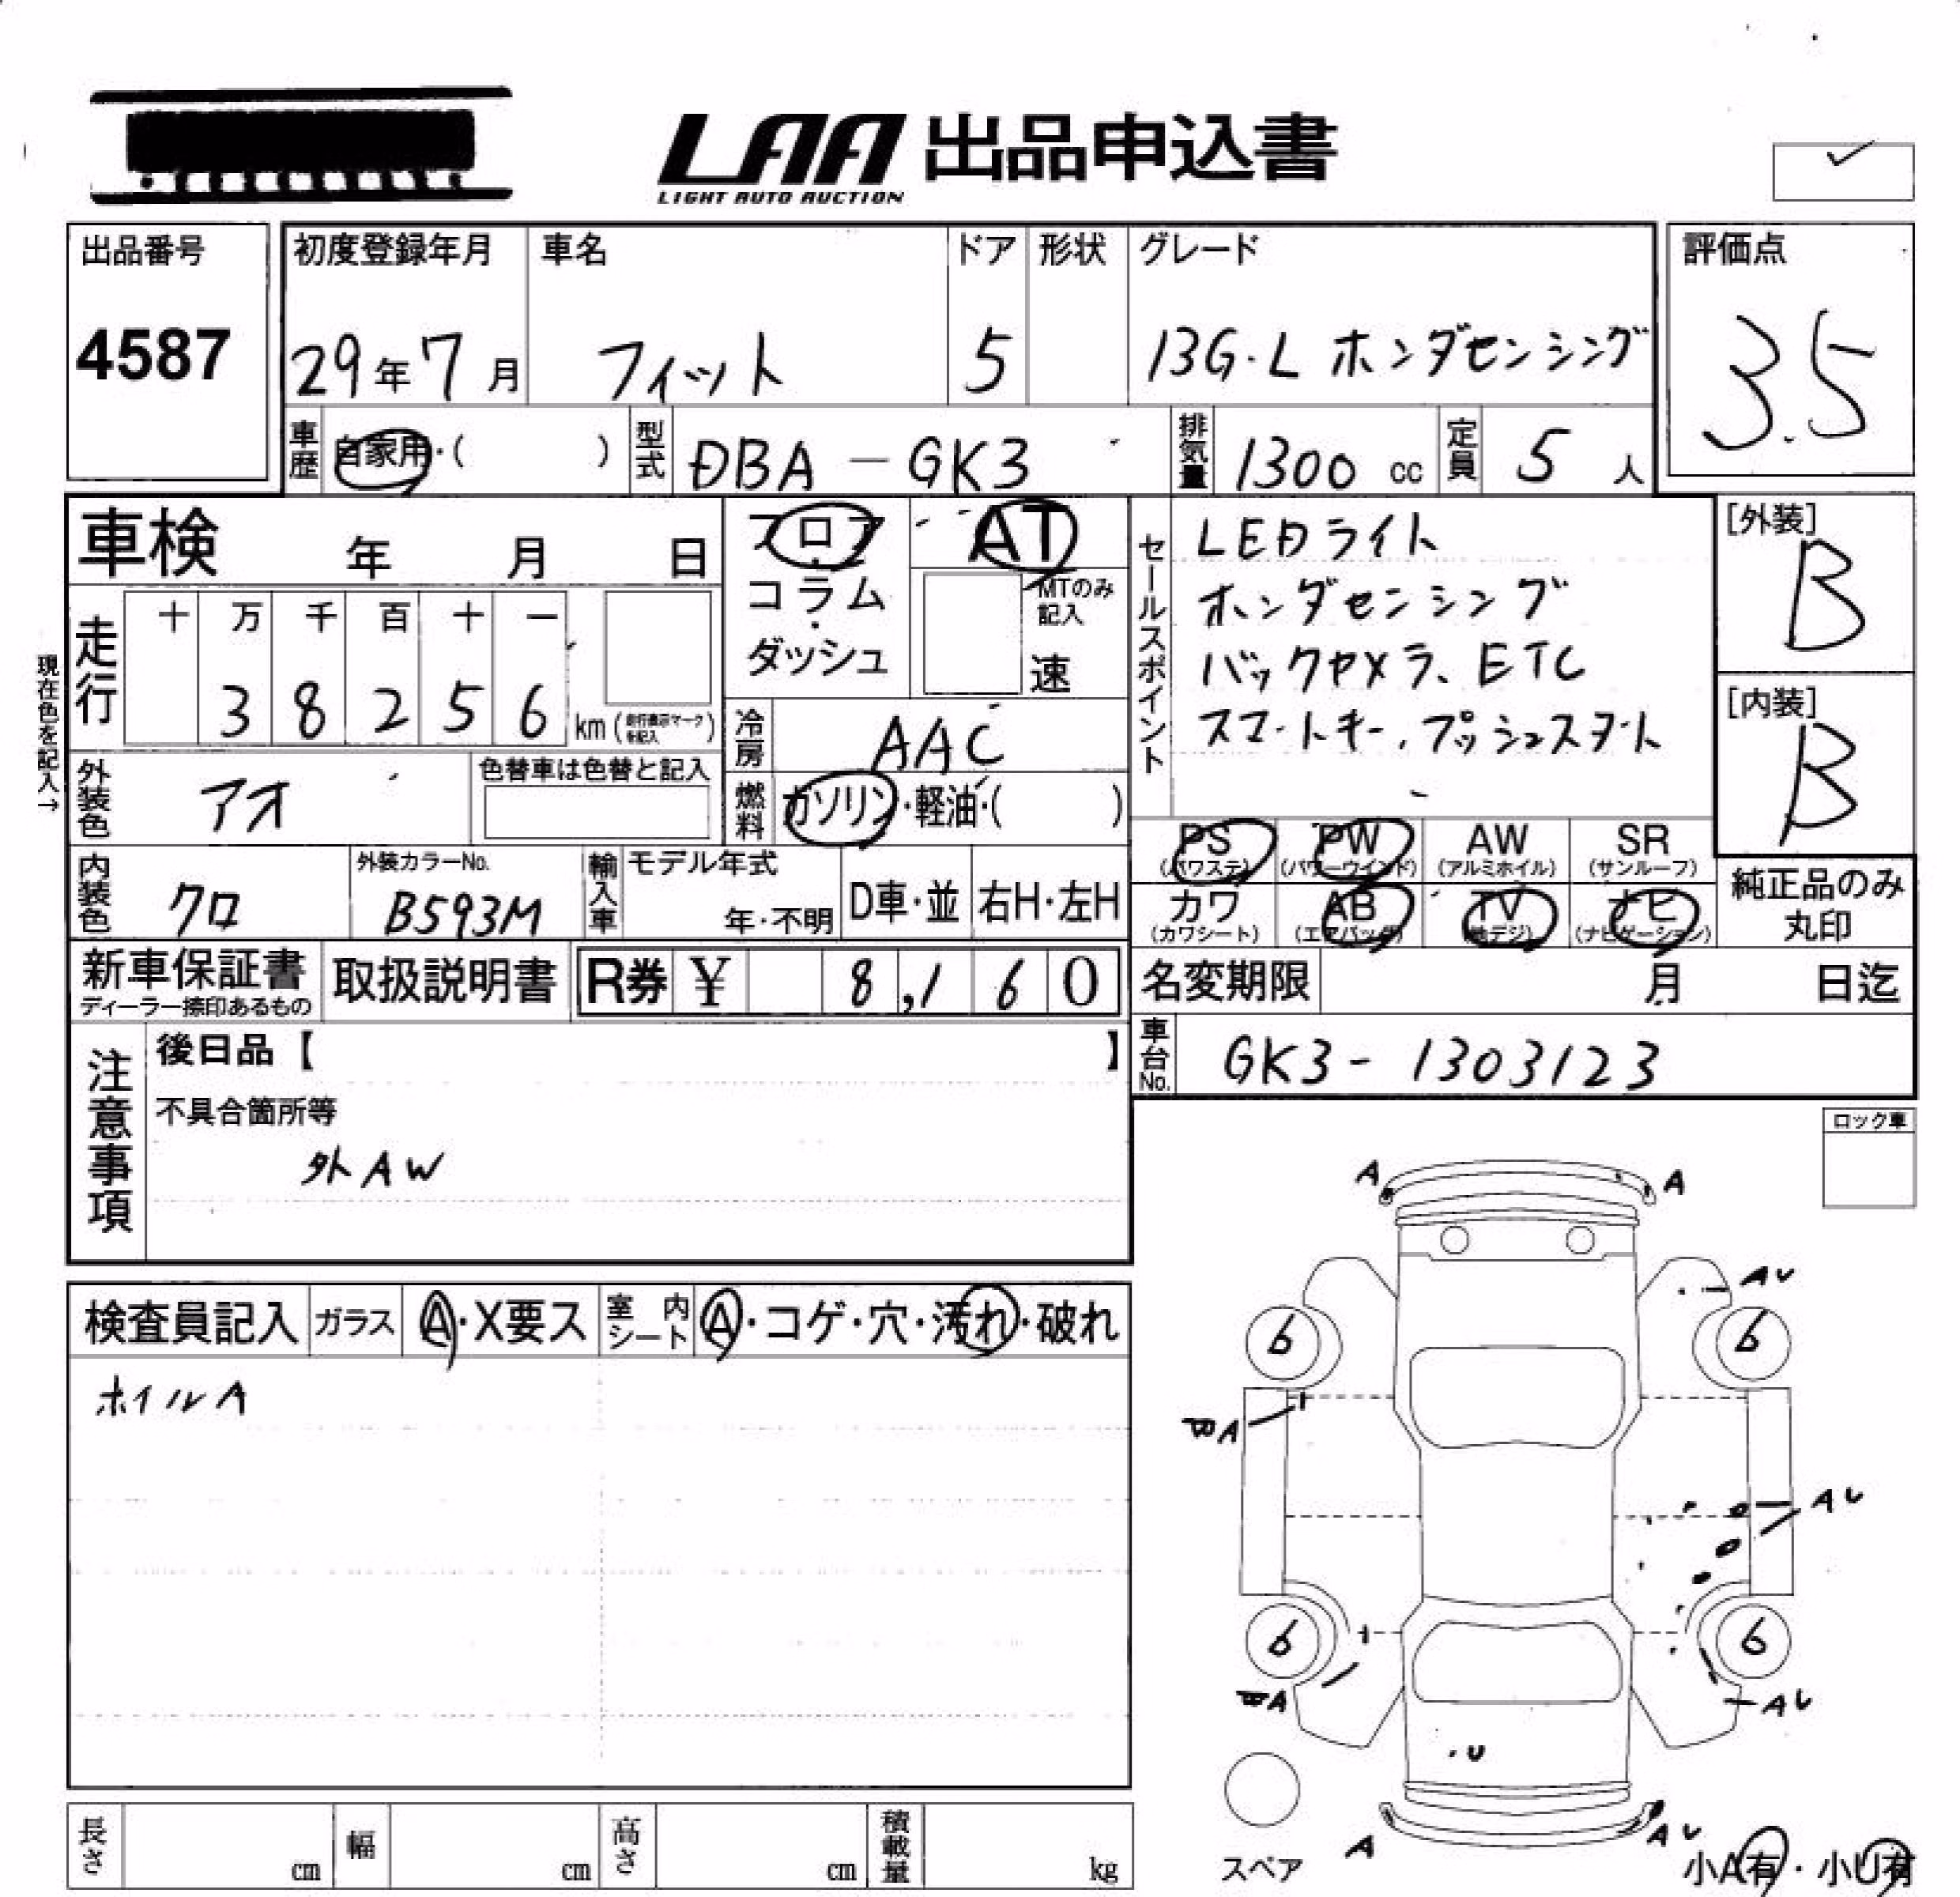 LAA 出品申込書
LIGHT AUTO AUCTION
出品番号
4587
初度登録年月
29年7月
車名
フィット
ドア
5
形状
グレード
13G・L ホンダセンシング
評価点
3.5
車歴
自家用・( )
型式
DBA-GK3
排気量
1300 cc
定員
5 人
車検 年 月 日
フロア
・
コラム
・
ダッシュ
AT
MTのみ
記入
速
セールスポイント
LEDライト
ホンダセンシング
バックカメラ、ETC
スマートキー、プッシュスタート
[外装]
B
[内装]
B
現在色を記入→
走行
十 万 千 百 十 一
3 8 2 5 6
km (走行表示マークを記入)
冷房
AAC
外装色
アオ
色替車は色替と記入
燃料
ガソリン・軽油・( )
PS
(パワステ)
PW
(パワーウインド)
AW
(アルミホイル)
SR
(サンルーフ)
内装色
クロ
外装カラーNo.
B593M
輸入車
モデル年式
年・不明
D車・並
右H・左H
カワ
(カワシート)
AB
(エアバッグ)
TV
(地デジ)
ナビ
(ナビゲーション)
純正品のみ
丸印
新車保証書
ディーラー捺印あるもの
取扱説明書
R券 ¥ 8,160
名変期限 月 日迄
車台No.
GK3-1303123
注意事項
後日品【 】
不具合箇所等
外AW
ロック車
検査員記入
ガラス
A・X要ス
室内
シート
A・コゲ・穴・汚れ・破れ
ホイルA
A
A
AU
6
6
A
AU
6
6
A
AU
U
A
AU
スペア
小A有・小U有
長さ
cm
幅
cm
高さ
cm
積載量
kg